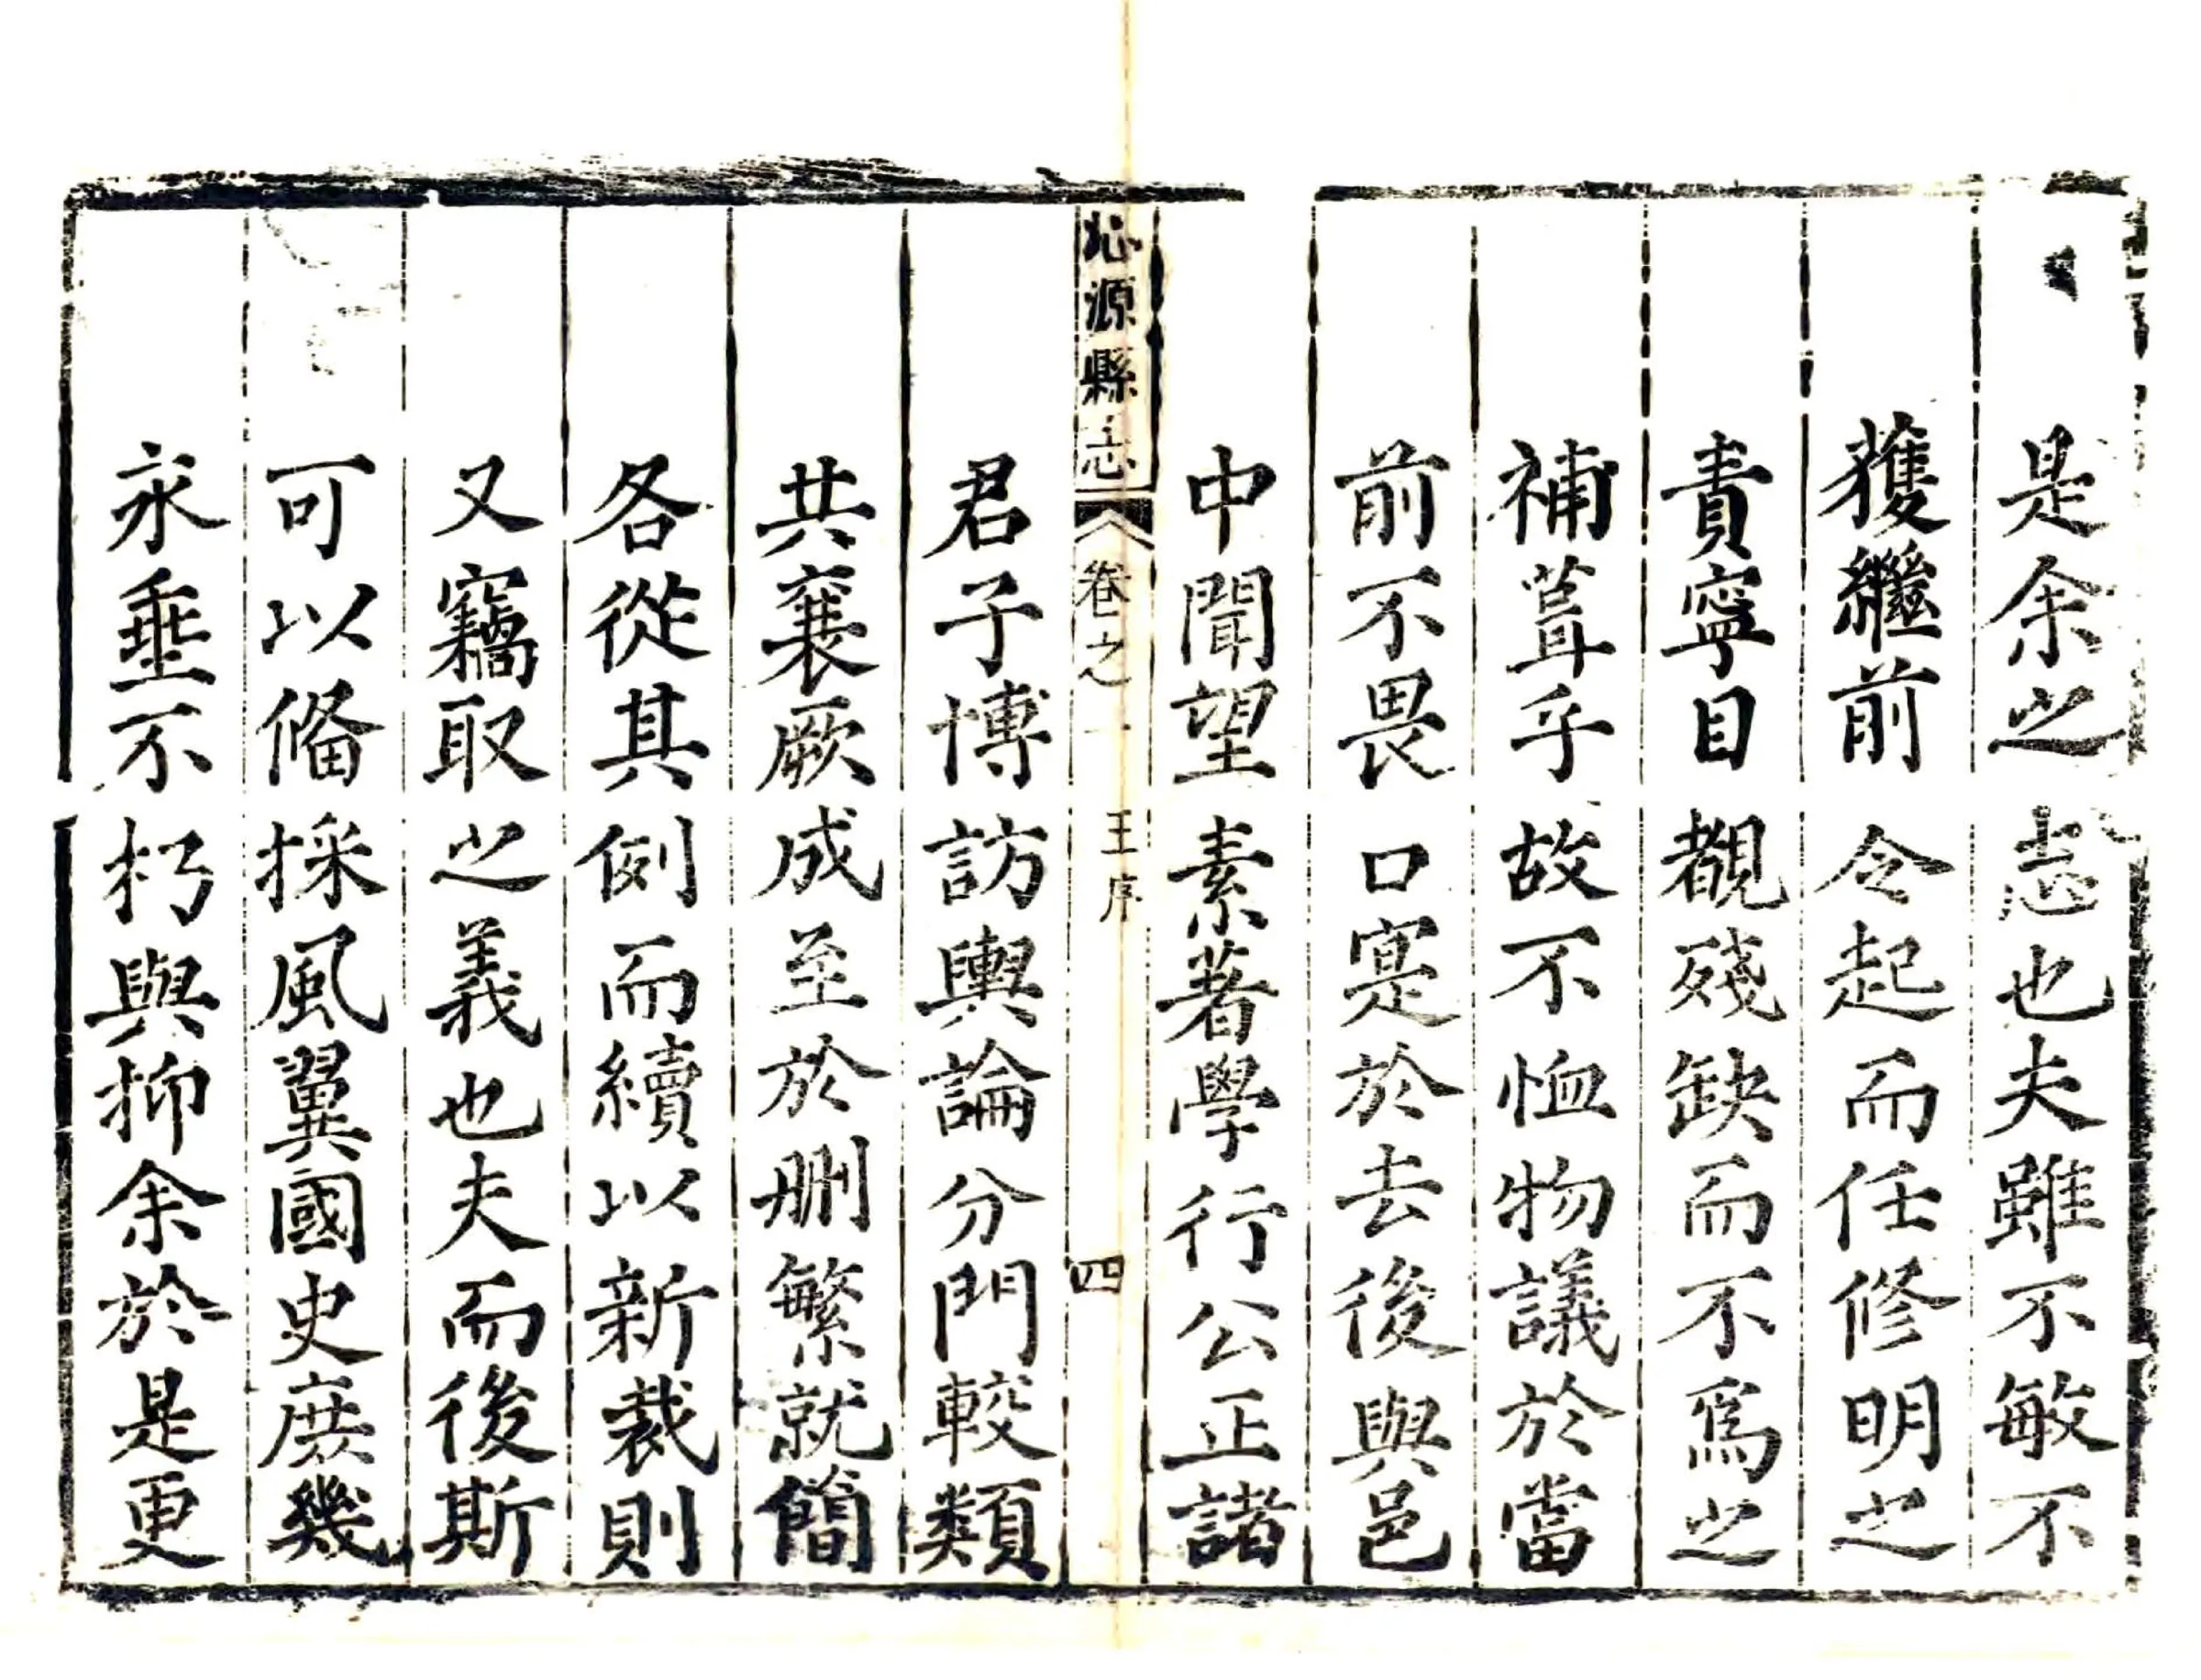 是余之志也夫雖不敏不
獲繼前令起而任修明之
責寧目覩殘缺而不爲之
補葺乎故不恤物議於當
前不畏口寔於去後與邑
中聞望素著學行公正諸
沁源縣志 卷之一 王序 四
君子博訪輿論分門較類
共襄厥成至於刪繁就簡
各從其例而續以新裁則
又竊取之義也夫而後斯
可以俻採風翼國史庶幾
永垂不朽與抑余於是更